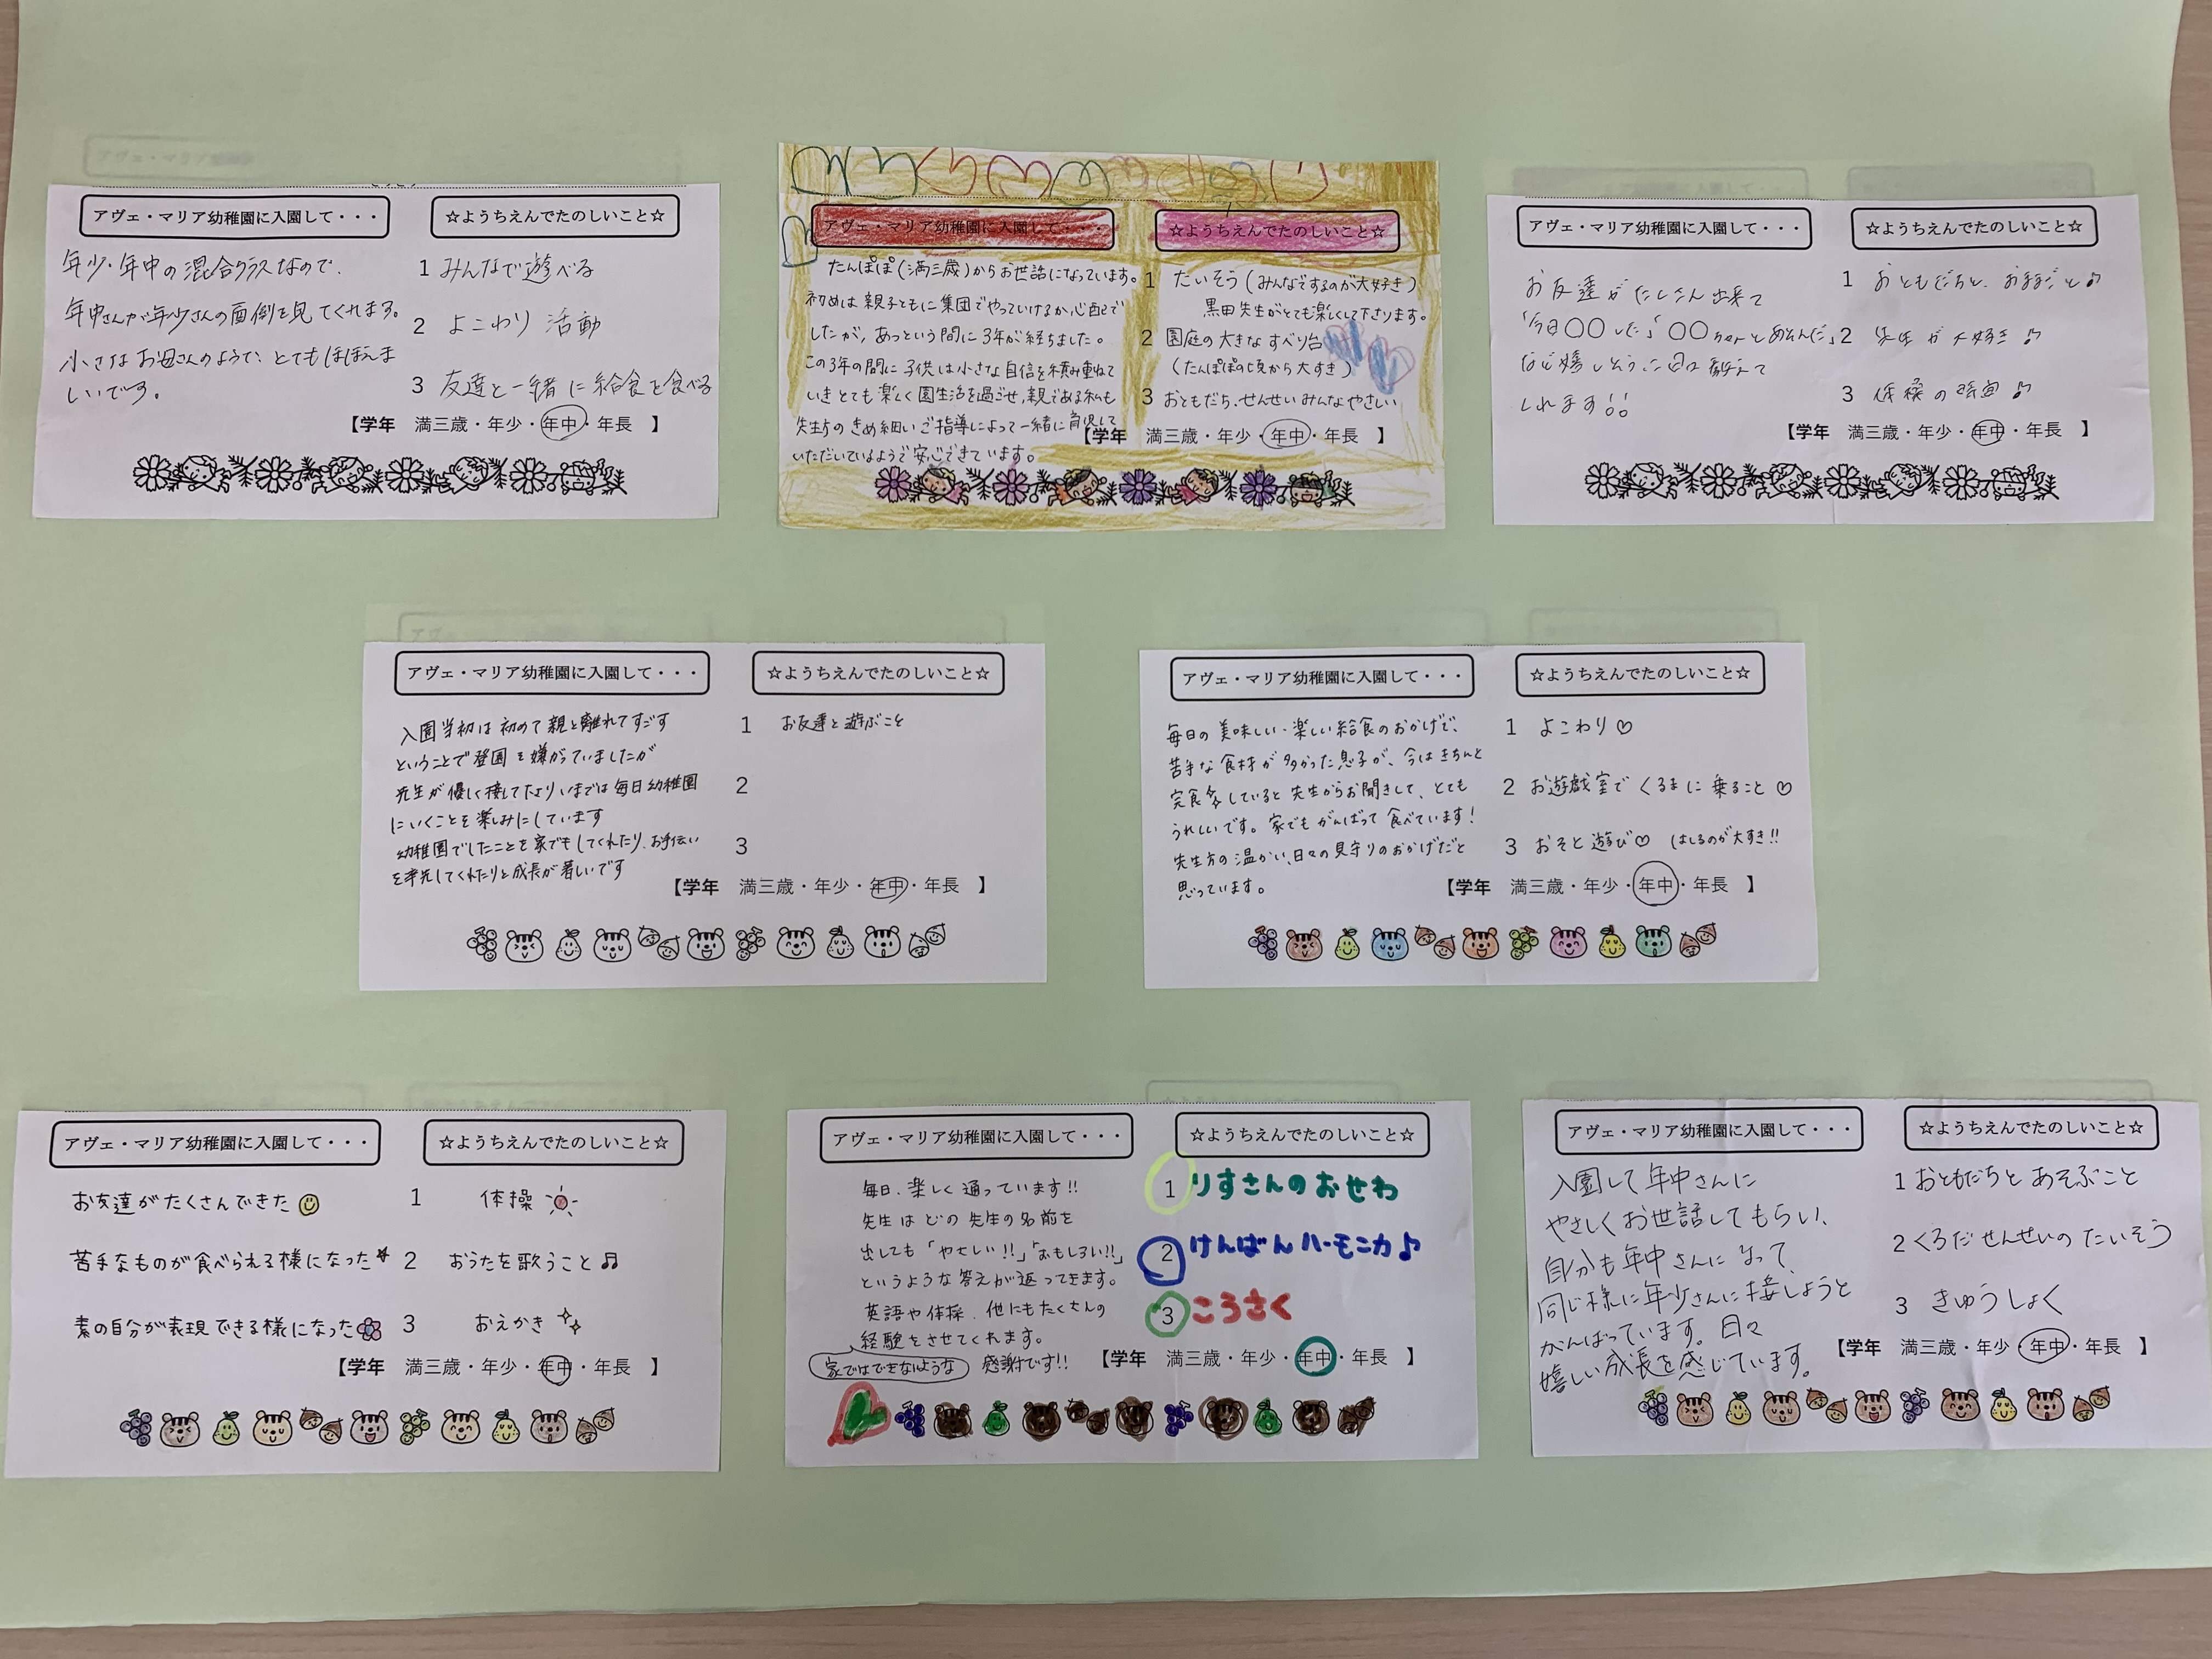 アヴェ・マリア幼稚園に入園して・・・
年少・年中の混合クラスなので、
年中さんが年少さんの面倒を見てくれます。
小さなお母さんのようで、とてもほほえま
しいです。
☆ようちえんでたのしいこと☆
1 みんなで遊べる
2 よこわり 活動
3 友達と一緒に給食を食べる
【学年 満三歳・年少・年中・年長 】
アヴェ・マリア幼稚園に入園して・・・
たんぽぽ(満三歳)からお世話になっています。
初めは親子ともに集団でやっていけるか心配で
したが、あっという間に3年が経ちました。
この3年の間に子供は小さな自信を積み重ねて
いきとても楽しく園生活を過ごせ、親である私も
先生方のきめ細いご指導によって一緒に育児して
いただいているようで安心できています。
☆ようちえんでたのしいこと☆
1 たいそう(みんなでするのが大好き)
黒田先生がとても楽しくして下さります。
2 園庭の大きなすべり台
(たんぽぽの頃から大すき)
3 おともだち、せんせいみんなやさしい
【学年 満三歳・年少・年中・年長 】
アヴェ・マリア幼稚園に入園して・・・
お友達がたくさん出来て
「今日〇〇した」「〇〇ちゃんとあそんだ」
など嬉しそうに毎日教えて
くれます!!
☆ようちえんでたのしいこと☆
1 おともだちと、おままごと♪
2 先生が大好き♪
3 体操の時間♪
【学年 満三歳・年少・年中・年長 】
アヴェ・マリア幼稚園に入園して・・・
入園当初は初めて親と離れてすごす
ということで登園を嫌がっていましたが
先生が優しく接してたよりいまでは毎日幼稚園
にいくことを楽しみにしています
幼稚園でしたことを家でもしてくれたり、お手伝い
を率先してくれたりと成長が著しいです
☆ようちえんでたのしいこと☆
1 お友達と遊ぶこと
2
3
【学年 満三歳・年少・年中・年長 】
アヴェ・マリア幼稚園に入園して・・・
毎日の美味しい・楽しい給食のおかげで、
苦手な食材が多かった息子が、今はきちんと
完食していると先生からお聞きして、とても
うれしいです。家でもがんばって食べています!
先生方の温かい、日々の見守りのおかげだと
思っています。
☆ようちえんでたのしいこと☆
1 よこわり♡
2 お遊戯室でくるまに乗ること♡
3 おそと遊び♡ はしるのが大すき!!
【学年 満三歳・年少・年中・年長 】
アヴェ・マリア幼稚園に入園して・・・
お友達がたくさんできた
苦手なものが食べられる様になった
素の自分が表現できる様になった
☆ようちえんでたのしいこと☆
1 体操
2 おうたを歌うこと♫
3 おえかき
【学年 満三歳・年少・年中・年長 】
アヴェ・マリア幼稚園に入園して・・・
毎日、楽しく通っています!!
先生はどの先生の名前を
出しても「やさしい!!」「おもしろい!!」
というような答えが返ってきます。
英語や体操、他にもたくさんの
経験をさせてくれます。
家ではできないような 感謝です!!
☆ようちえんでたのしいこと☆
1 りすさんのおせわ
2 けんばんハーモニカ♪
3 こうさく
【学年 満三歳・年少・年中・年長 】
アヴェ・マリア幼稚園に入園して・・・
入園して年中さんに
やさしくお世話してもらい、
自分も年中さんになって、
同じ様に年少さんに接しようと
がんばっています。日々
嬉しい成長を感じています。
☆ようちえんでたのしいこと☆
1 おともだちとあそぶこと
2 くろだせんせいのたいそう
3 きゅうしょく
【学年 満三歳・年少・年中・年長 】